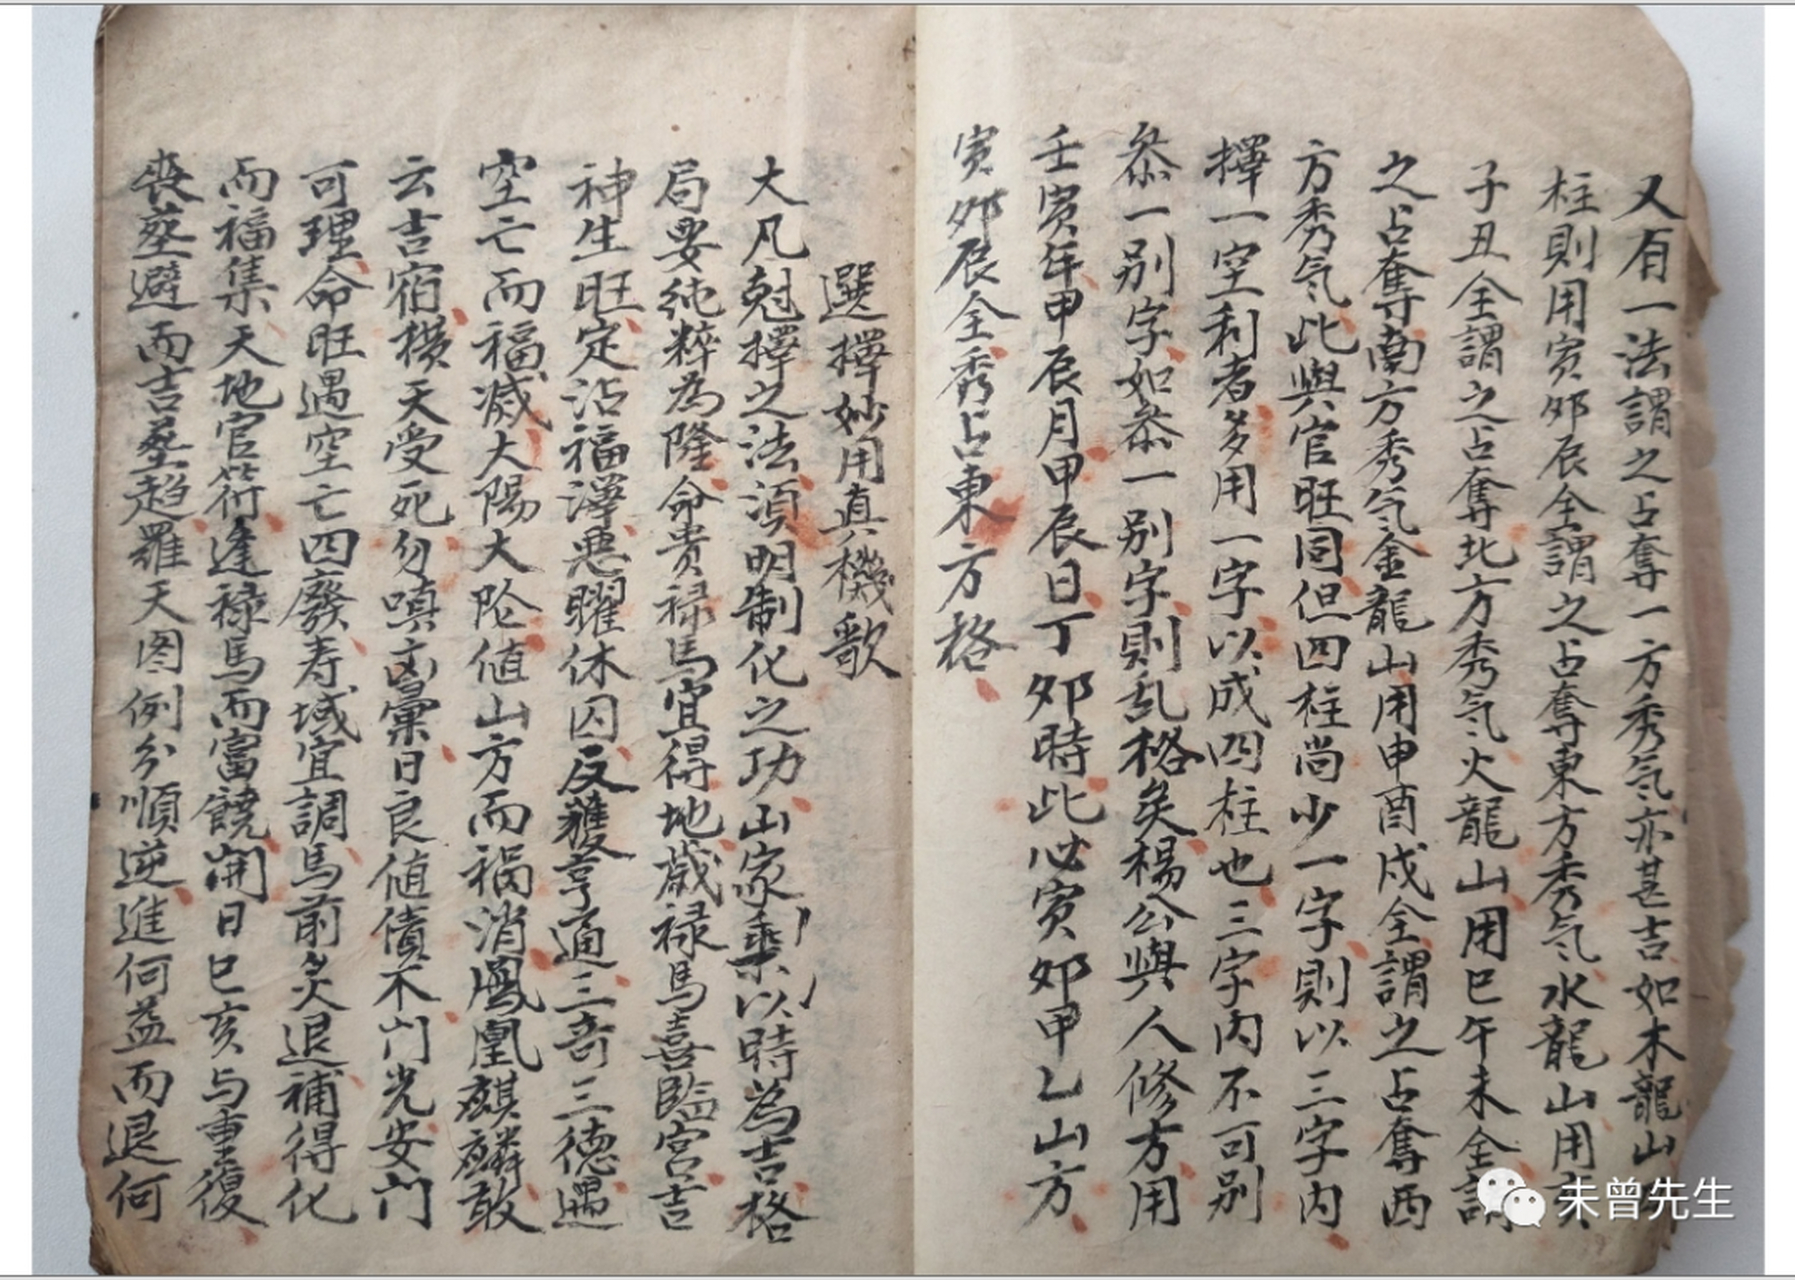 又有一法謂之占奪一方秀氣亦甚吉如木龍山
柱則用寅卯辰全謂之占奪東方秀氣水龍山用亥
子丑全謂之占奪北方秀氣火龍山用巳午未全謂
之占奪南方秀氣金龍山用申酉戌全謂之占奪西
方秀氣此與官旺同但四柱尚少一字則以三字內
擇一空利者多用一字以成四柱也三字內不可別
叅一別字如叅一別字則乱格矣楊公與人修方用
壬寅年甲辰月甲辰日丁卯時此必寅卯甲乙山方
寅卯辰全秀占東方格
選擇妙用真機歌
大凡尅擇之法須明制化之功山家乘以時為吉格
局要純粹為隆命貴禄馬宜得地歲禄馬喜臨宮吉
神生旺定沾福澤惡曜休囚反獲亨通三奇三德遇
空亡而福减大陽大陰値山方而禍消鳳凰麒麟敢
云吉宿橫天受死勿嗔凶宿日良値債不門光安門
可理命旺遇空亡四廢寿域宜調馬前炙退補得化
而福集天地官符逢禄馬而富饒開日巳亥与重復
丧塟避而吉塟趋羅天图例分順逆進何益而退何
未曾先生